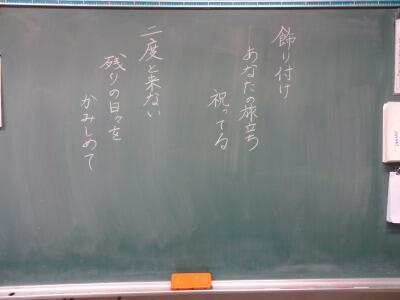 飾り付け
あなたの旅立ち
祝ってる
二度と来ない
残りの日々を
かみしめて